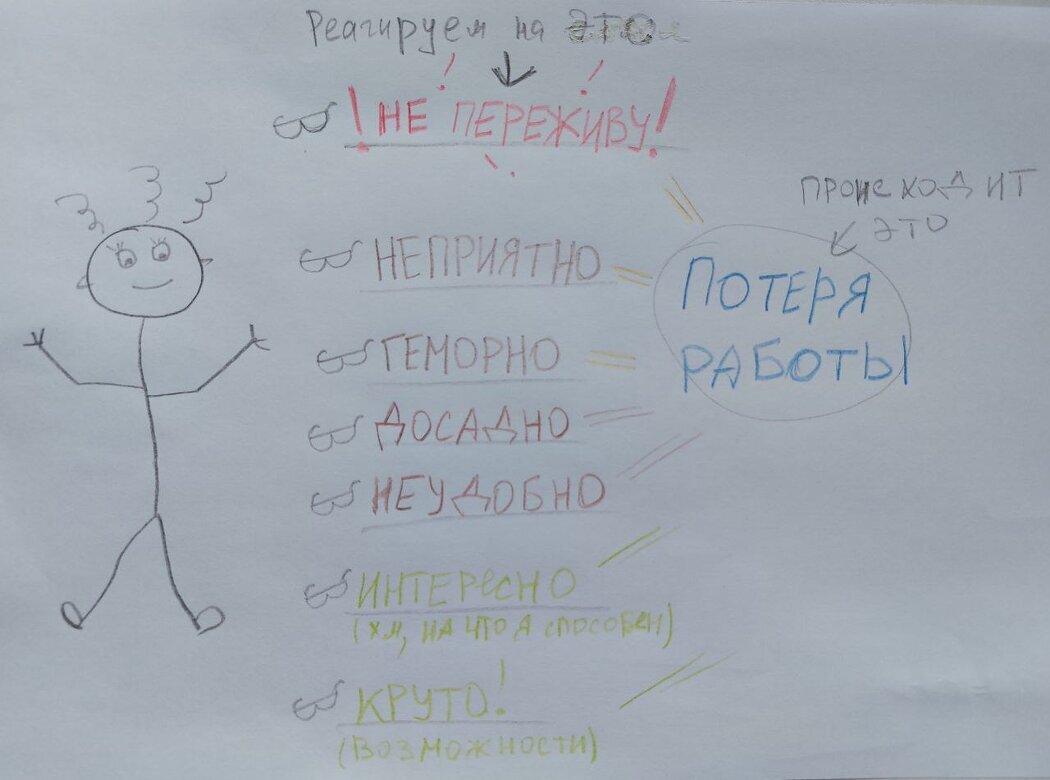 Реагируем на ЭТО
! НЕ ПЕРЕЖИВУ!
происходит
это
НЕПРИЯТНО
ПОТЕРЯ
РАБОТЫ
ГЕМОРНО
ДОСАДНО
НЕУДОБНО
ИНТЕРесНО
(ХМ, НА ЧТО Я СПОСОБЕН)
КРУТО!
(ВОЗМОЖНОСТИ)